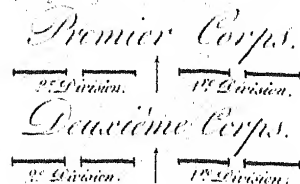 Premier Corps.
2e. Division. 1re. Division.
Deuxième Corps.
2e. Division. 1re. Division.